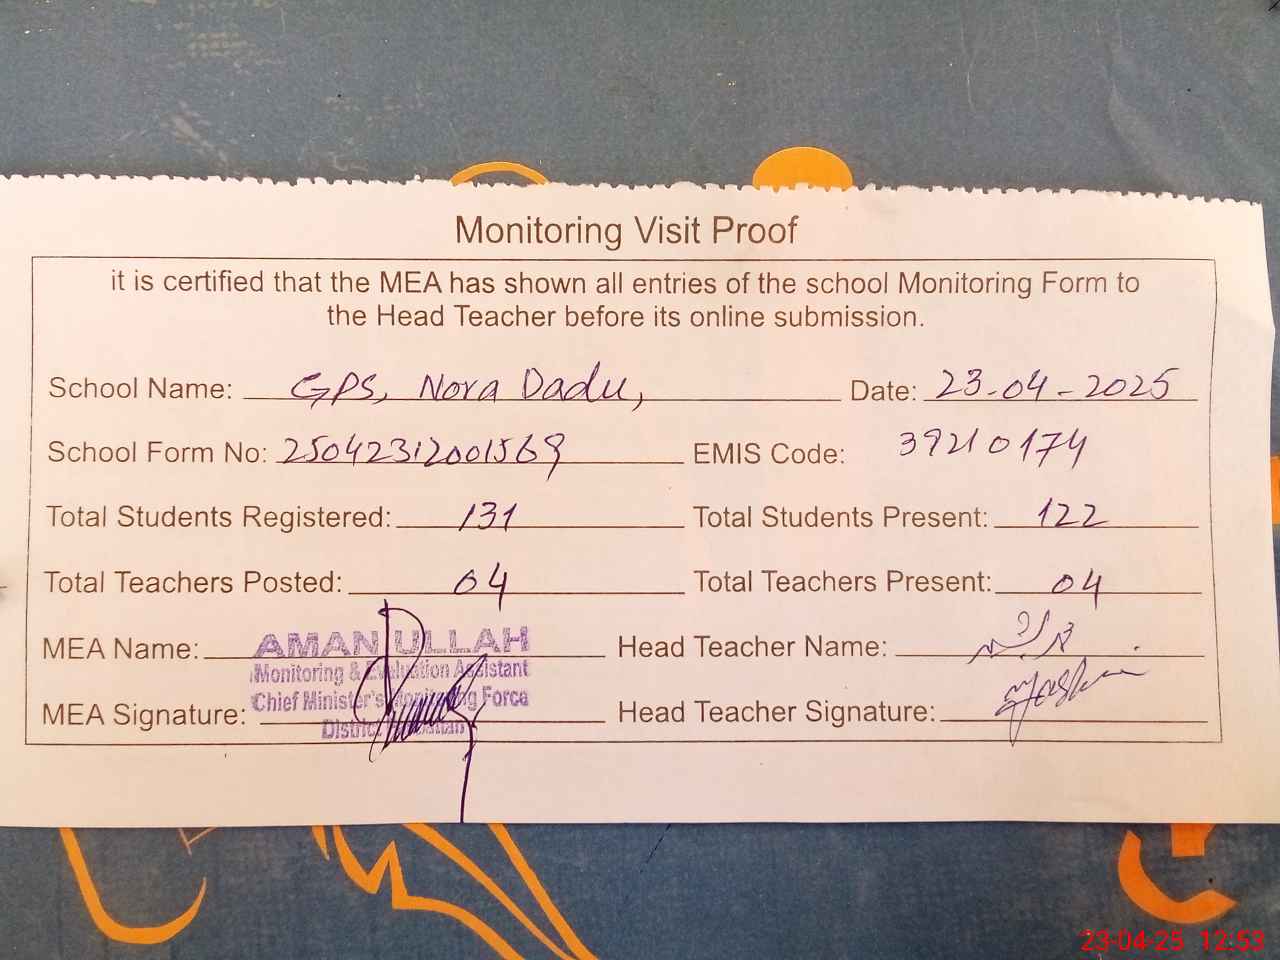 Monitoring Visit Proof
it is certified that the MEA has shown all entries of the school Monitoring Form to
the Head Teacher before its online submission.
School Name: GPS, Nora Dadu, Date: 23-04-2025
School Form No: 25042312001569 EMIS Code: 39210174
Total Students Registered: 131 Total Students Present: 122
Total Teachers Posted: 04 Total Teachers Present: 04
MEA Name: AMAN ULLAH Head Teacher Name:
Monitoring & Evaluation Assistant
Chief Minister's Monitoring Force
MEA Signature: Head Teacher Signature:
District
23-04-25 12:53